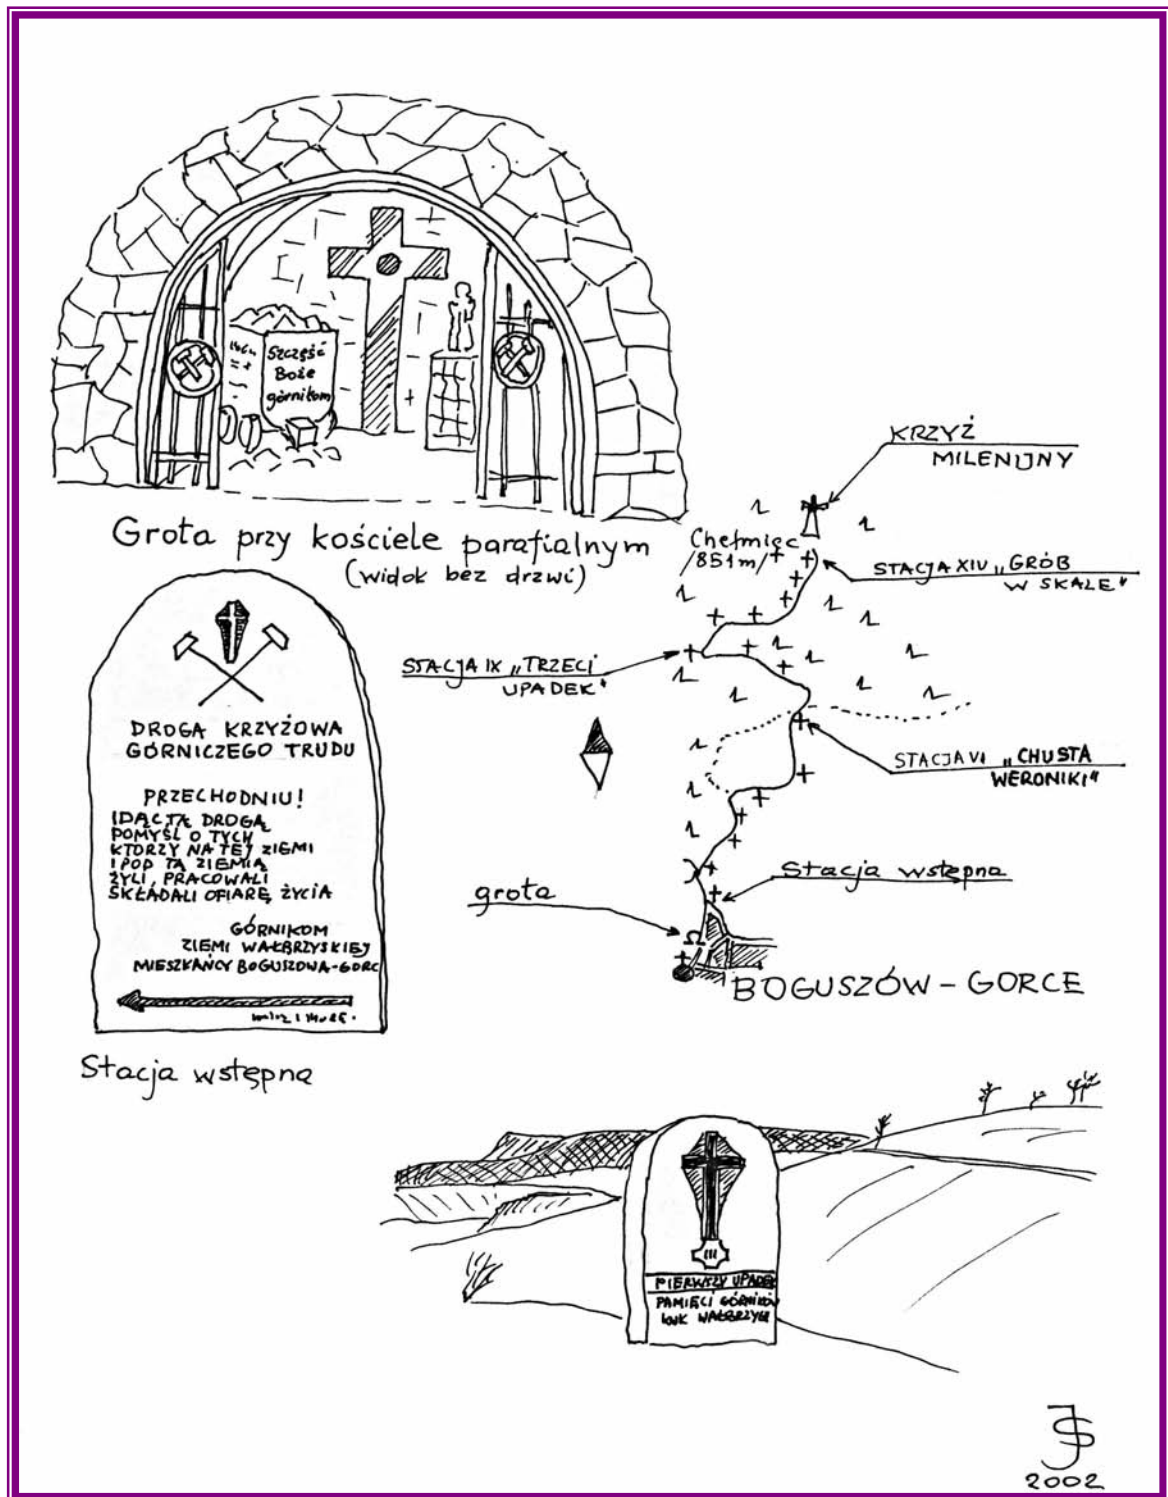 Szczęść
Boże
górnikom
Grota przy kościele parafialnym
(widok bez drzwi)
KRZYŻ
MILENIJNY
Chełmiec
/851m/
STACJA XIV „GRÓB
W SKALE"
STACJA IX „TRZECI
UPADEK"
STACJA VI „CHUSTA
WERONIKI"
Stacja wstępna
grota
BOGUSZÓW - GORCE
DROGA KRZYŻOWA
GÓRNICZEGO TRUDU
PRZECHODNIU!
IDĄC TĄ DROGĄ
POMYŚL O TYCH
KTORZY NA TEJ ZIEMI
I POD TĄ ZIEMIĄ
ŻYLI, PRACOWALI
SKŁADALI OFIARĘ ŻYCIA
GÓRNIKOM
ZIEMI WAŁBRZYSKIEJ
MIESZKAŃCY BOGUSZOWA-GORC
Stacja wstępna
III
PIERWSZY UPADEK
PAMIĘCI GÓRNIKÓW
KWK WAŁBRZYCH
JS
2002